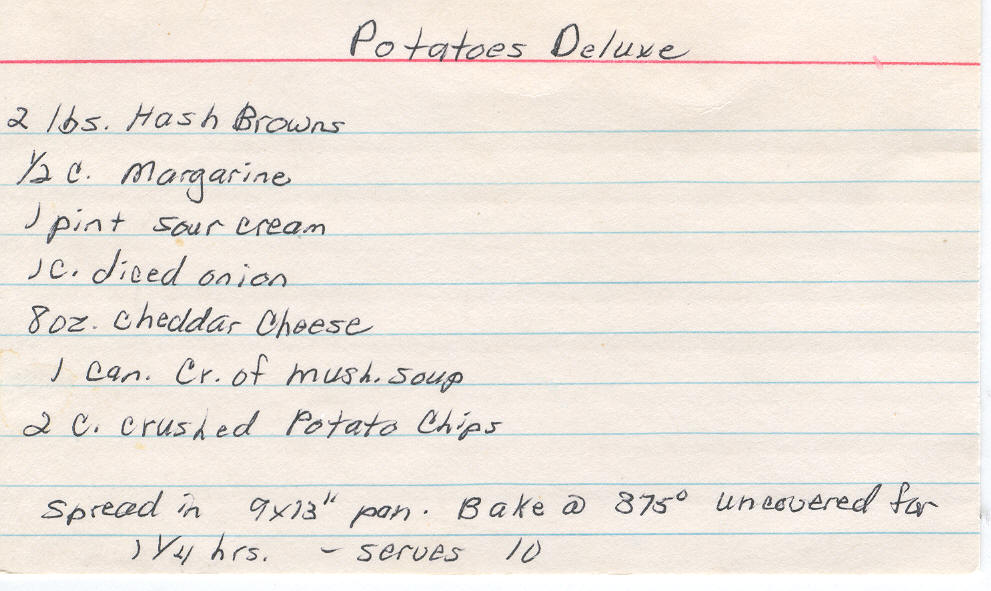 Potatoes Deluxe
2 lbs. Hash Browns
1/2 C. Margarine
1 pint sour cream
1 C. diced onion
8 oz. Cheddar Cheese
1 can. Cr. of mush. soup
2 C. crushed Potato Chips
Spread in 9x13" pan. Bake @ 875° uncovered for
1 1/4 hrs. - serves 10